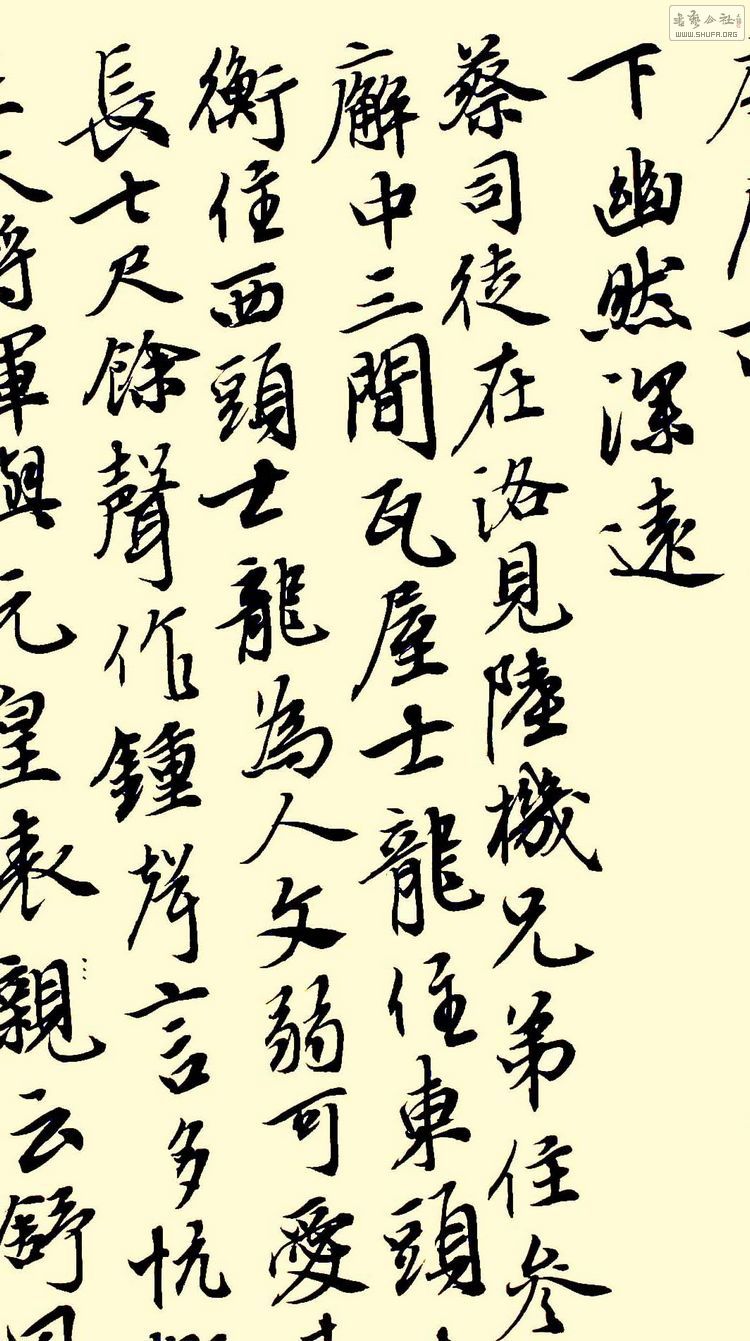 下幽然深遠
蔡司徒在洛見陸機兄弟住參
廨中三間瓦屋士龍住東頭
衡住西頭士龍為人文弱可愛
長七尺餘聲作鍾聲言多忼
大將軍與元皇表親云舒
書藝公社
WWW.SHUFA.ORG